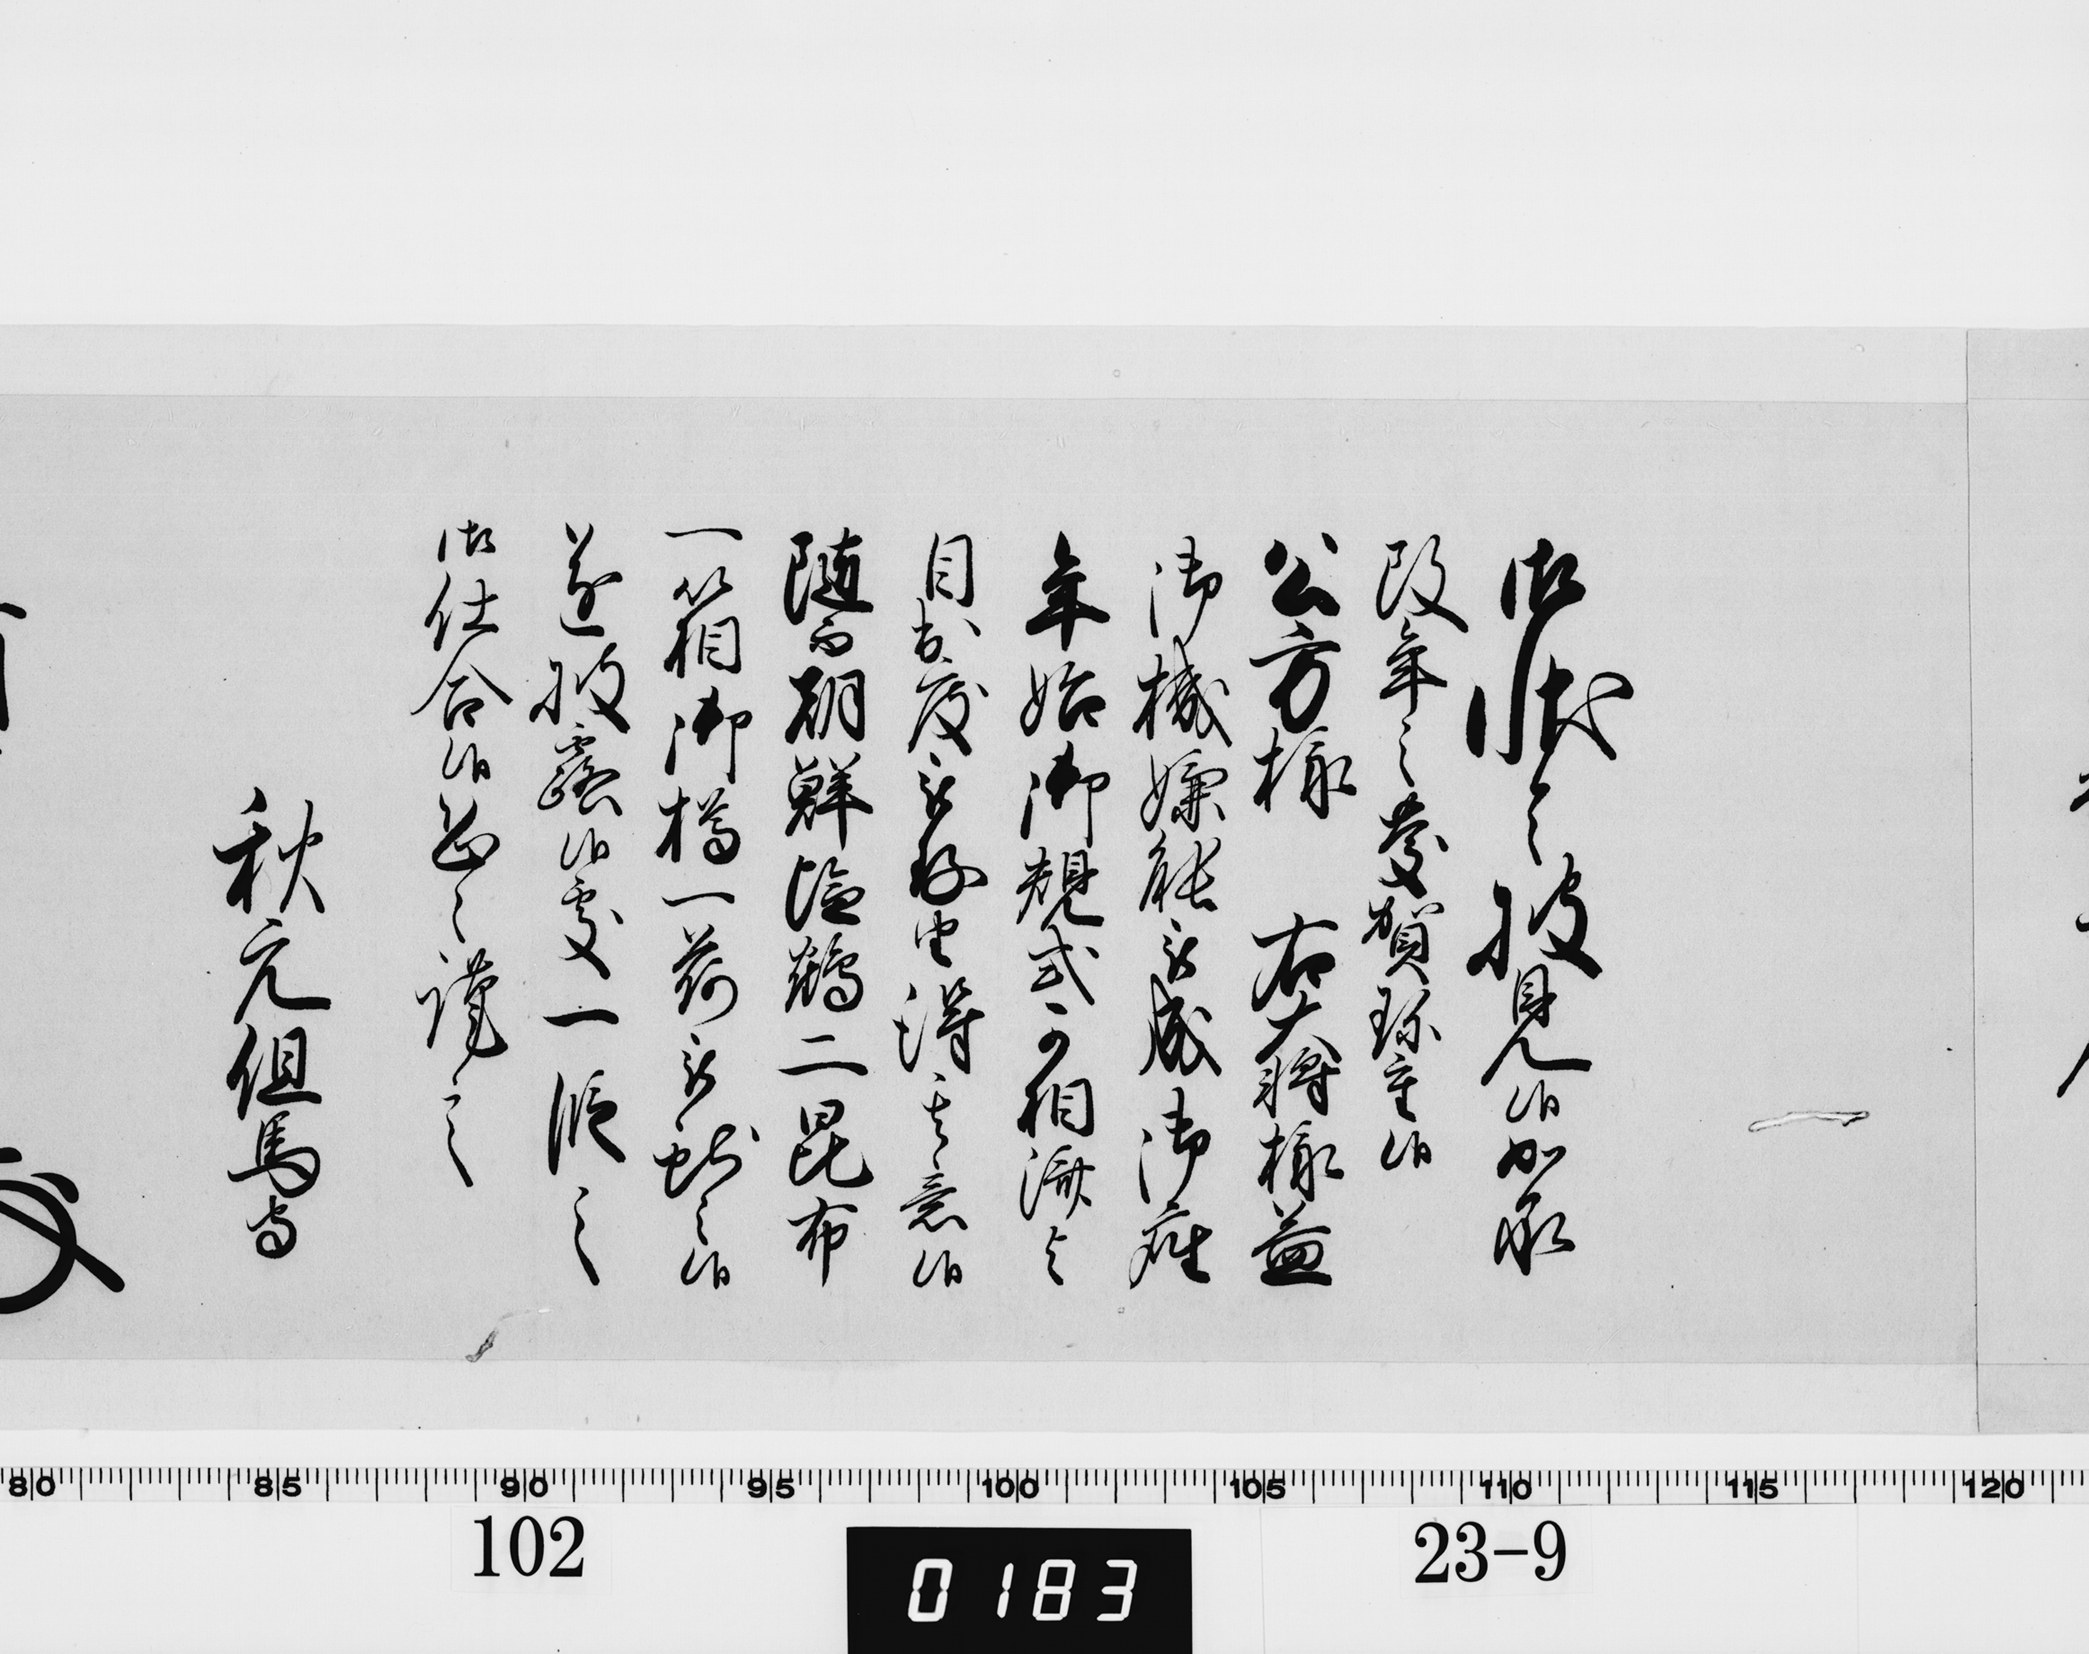 御状令披見候如承
改年之慶賀珍重候
公方様　右大将様益
御機嫌能被成御座
年始御規式可相済与
目出度被存由得其意候
随而朝鮮塩鶴二昆布
一箱御樽一荷被献之候
遂披露候處一段之
御仕合候恐々謹言
秋元但馬守
80 85 90 95 100 105 110 115 120
102
23-9
0183